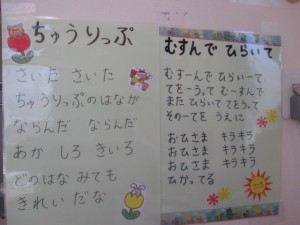 ちゅうりっぷ
さいた さいた
ちゅうりっぷのはなが
ならんだ ならんだ
あか しろ きいろ
どのはな みても
きれいだな
むすんで ひらいて
むすーんで ひらいーて
てをーうって むーすんで
また ひらいて てをうって
そのーてを うえに
おひさま キラキラ
おひさま キラキラ
おひさま キラキラ
ひかってる